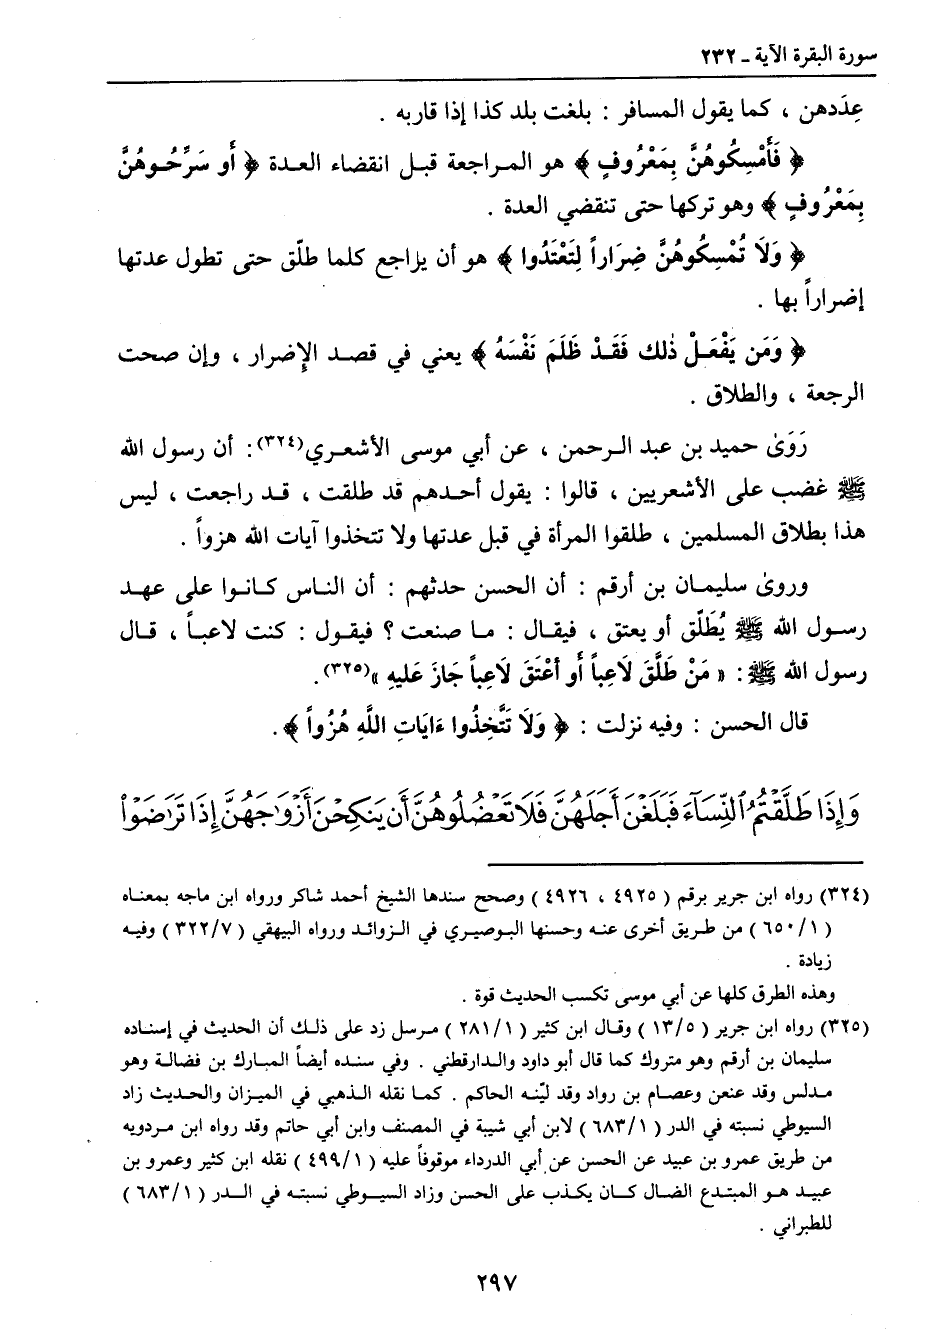 سورة البقرة الآية ـ ٢٣٢
عِدَدهن ، كما يقول المسافر : بلغت بلد كذا إذا قاربه .
﴿ فَأَمْسِكُوهُنَّ بِمَعْرُوفٍ ﴾ هو المراجعة قبل انقضاء العدة ﴿ أَو سَرِّحُوهُنَّ
بِمَعْرُوفٍ ﴾ وهو تركها حتى تنقضي العدة .
﴿ وَلَا تُمْسِكُوهُنَّ ضِرَاراً لِتَعْتَدُوا ﴾ هو أن يراجع كلما طلّق حتى تطول عدتها
إضراراً بها .
﴿ وَمَن يَفْعَلْ ذٰلك فَقَدْ ظَلَمَ نَفْسَهُ ﴾ يعني في قصد الإِضرار ، وإن صحت
الرجعة ، والطلاق .
رَوَىٰ حميد بن عبد الرحمن ، عن أبي موسى الأشعري(٣٢٤): أن رسول الله
ﷺ غضب على الأشعريين ، قالوا : يقول أحدهم قد طلقت ، قد راجعت ، ليس
هذا بطلاق المسلمين ، طلقوا المرأة في قبل عدتها ولا تتخذوا آيات الله هزواً .
وروىٰ سليمان بن أرقم : أن الحسن حدثهم : أن الناس كانوا على عهد
رسول الله ﷺ يُطَلّق أو يعتق ، فيقال : ما صنعت ؟ فيقول : كنت لاعباً ، قال
رسول الله ﷺ: « مَنْ طَلَّقَ لَاعِباً أَو أَعْتَقَ لَاعِباً جَازَ عَليهِ »(٣٢٥).
قال الحسن : وفيه نزلت : ﴿ وَلَا تَتَّخِذُوا ءَايَاتِ اللَّهِ هُزُواً ﴾.
وَإِذَا طَلَّقْتُمُ ٱلنِّسَآءَ فَبَلَغْنَ أَجَلَهُنَّ فَلَا تَعْضُلُوهُنَّ أَن يَنكِحْنَ أَزْوَٰجَهُنَّ إِذَا تَرَٰضَوْا۟
(٣٢٤) رواه ابن جرير برقم ( ٤٩٢٥ ، ٤٩٢٦ ) وصحح سندها الشيخ أحمد شاكر ورواه ابن ماجه بمعناه
( ١/ ٦٥٠ ) من طريق أخرى عنه وحسنها البوصيري في الزوائد ورواه البيهقي ( ٧/ ٣٢٢ ) وفيه
زيادة .
وهذه الطرق كلها عن أبي موسى تكسب الحديث قوة .
(٣٢٥) رواه ابن جرير ( ٥/ ١٣ ) وقال ابن كثير ( ١/ ٢٨١ ) مرسل زد على ذلك أن الحديث في إسناده
سليمان بن أرقم وهو متروك كما قال أبو داود والدارقطني . وفي سنده أيضاً المبارك بن فضالة وهو
مدلس وقد عنعن وعصام بن رواد وقد ليّنه الحاكم . كما نقله الذهبي في الميزان والحديث زاد
السيوطي نسبته في الدر ( ١/ ٦٨٣ ) لابن أبي شيبة في المصنف وابن أبي حاتم وقد رواه ابن مردويه
من طريق عمرو بن عبيد عن الحسن عن أبي الدرداء موقوفاً عليه ( ١/ ٤٩٩ ) نقله ابن كثير وعمرو بن
عبيد هو المبتدع الضال كان يكذب على الحسن وزاد السيوطي نسبته في الدر ( ١/ ٦٨٣ )
للطبراني .
٢٩٧